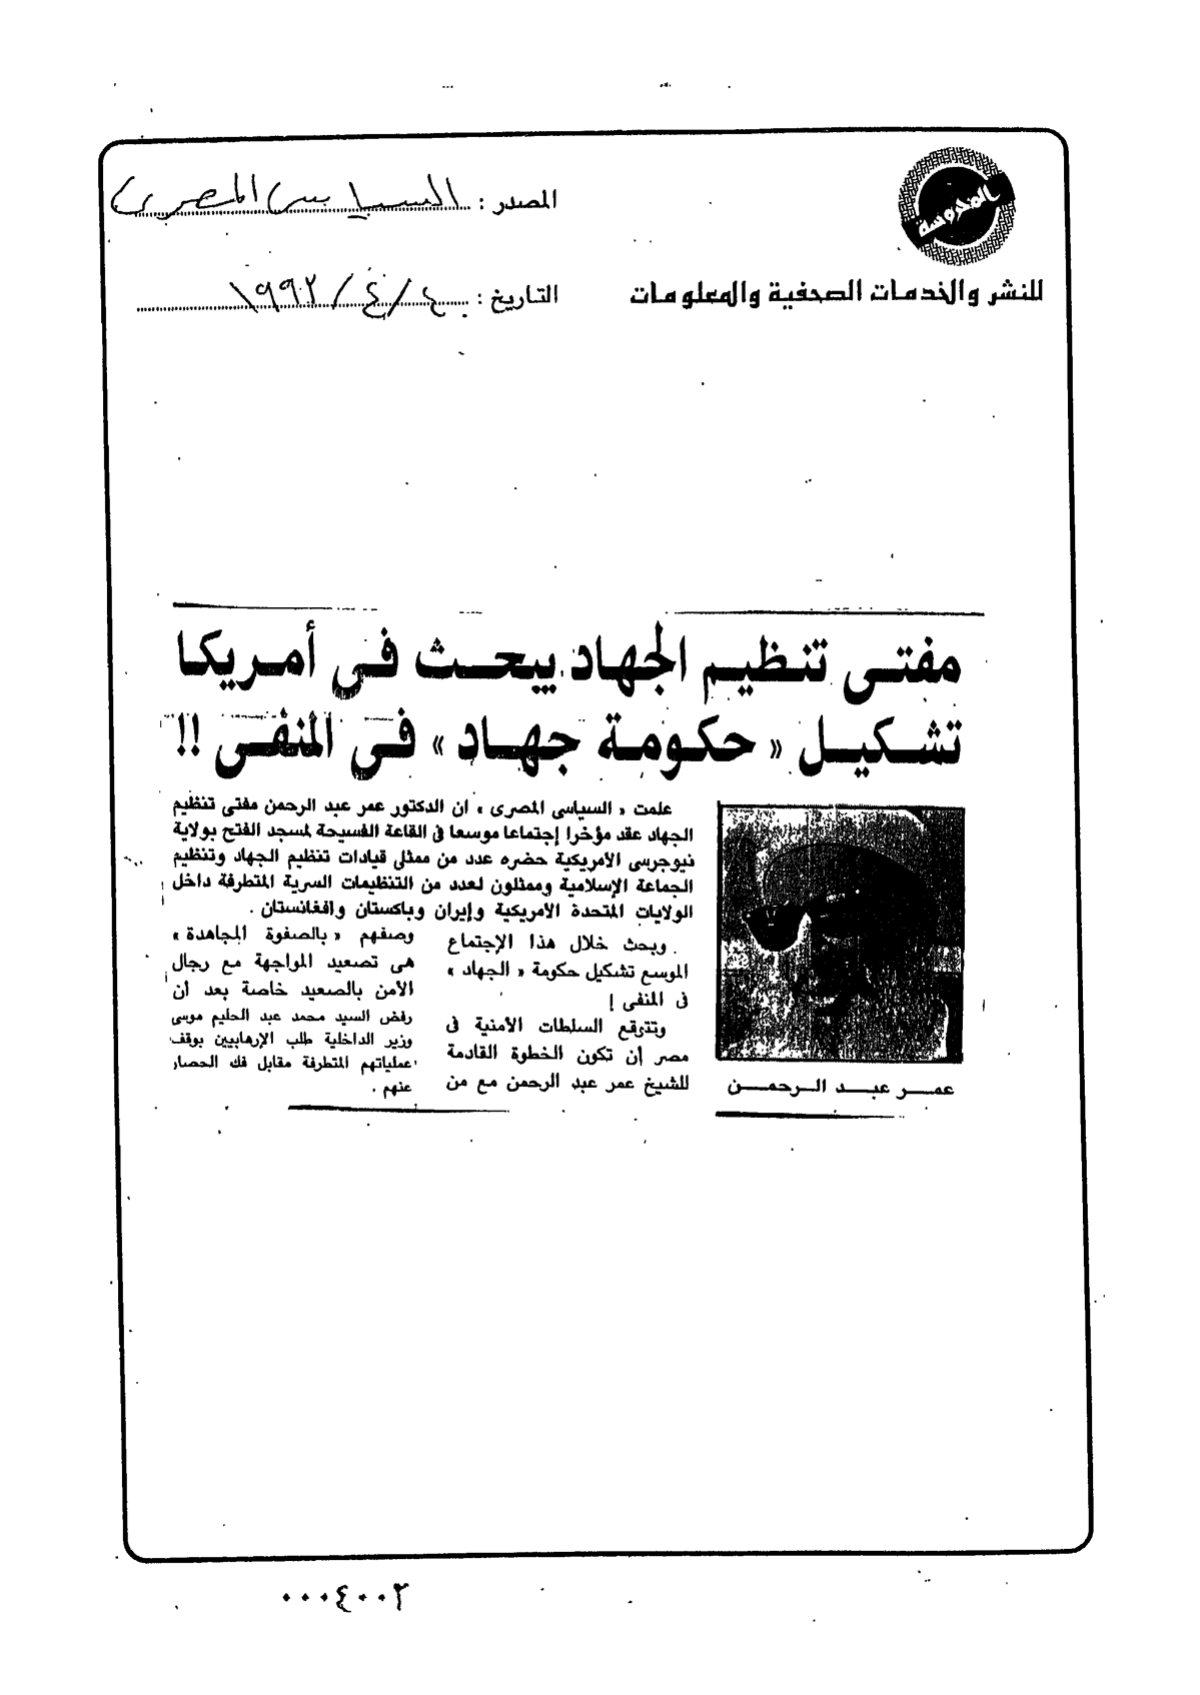 المحروسة
للنشر والخدمات الصحفية والمعلومات
المصدر : السياسى المصرى
التاريخ : ٤ / ٤ / ١٩٩٢
مفتى تنظيم الجهاد يبحث فى أمريكا
تشكيل « حكومة جهاد » فى المنفى !!
علمت « السياسى المصرى » ان الدكتور عمر عبد الرحمن مفتى تنظيم
الجهاد عقد مؤخرا إجتماعا موسعا فى القاعة الفسيحة لمسجد الفتح بولاية
نيوجرسى الأمريكية حضره عدد من ممثلى قيادات تنظيم الجهاد وتنظيم
الجماعة الإسلامية وممثلون لعدد من التنظيمات السرية المتطرفة داخل
الولايات المتحدة الأمريكية وإيران وباكستان وافغانستان .
وبحث خلال هذا الإجتماع
الموسع تشكيل حكومة « الجهاد »
فى المنفى !
وتتوقع السلطات الأمنية فى
مصر أن تكون الخطوة القادمة
للشيخ عمر عبد الرحمن مع من
وصفهم « بالصفوة المجاهدة »
هى تصعيد المواجهة مع رجال
الأمن بالصعيد خاصة بعد أن
رفض السيد محمد عبد الحليم موسى
وزير الداخلية طلب الإرهابيين بوقف
عملياتهم المتطرفة مقابل فك الحصار
عنهم .
عمر عبد الرحمن
٠٠٠٤٠٠٢